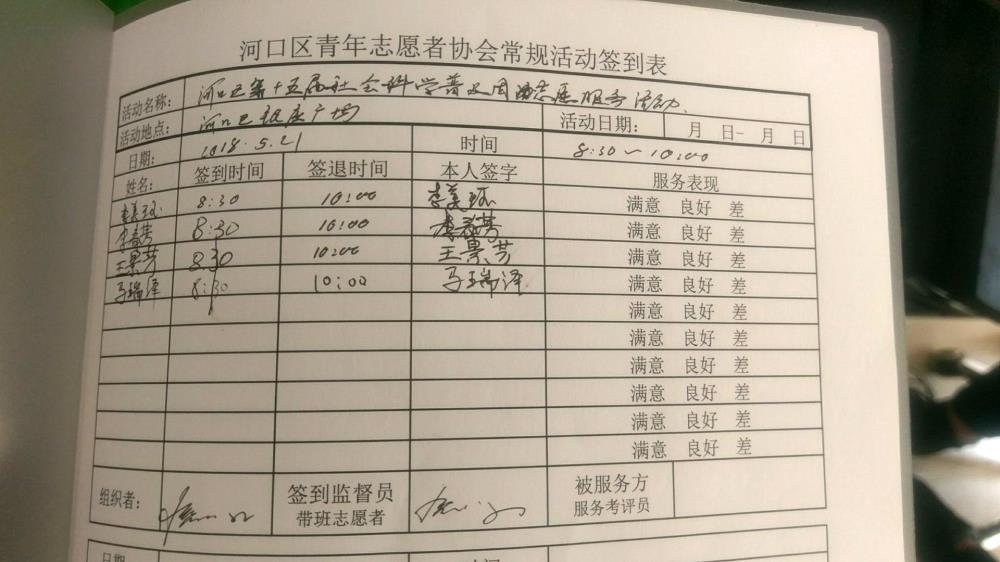 河口区青年志愿者协会常规活动签到表
活动名称: 河口区第十五届社会科学普及周活动志愿服务活动
活动地点: 河口区银座广场 活动日期: 月 日- 月 日
日期: 2018.5.21 时间 8:30~10:00
姓名: 签到时间 签退时间 本人签字 服务表现
8:30 10:00 满意 良好 差
8:30 10:00 满意 良好 差
王景芳 8:30 10:00 王景芳 满意 良好 差
马瑞泽 8:30 10:00 马瑞泽 满意 良好 差
满意 良好 差
满意 良好 差
满意 良好 差
满意 良好 差
满意 良好 差
满意 良好 差
组织者: 签到监督员 被服务方
带班志愿者 服务考评员
日期 时间